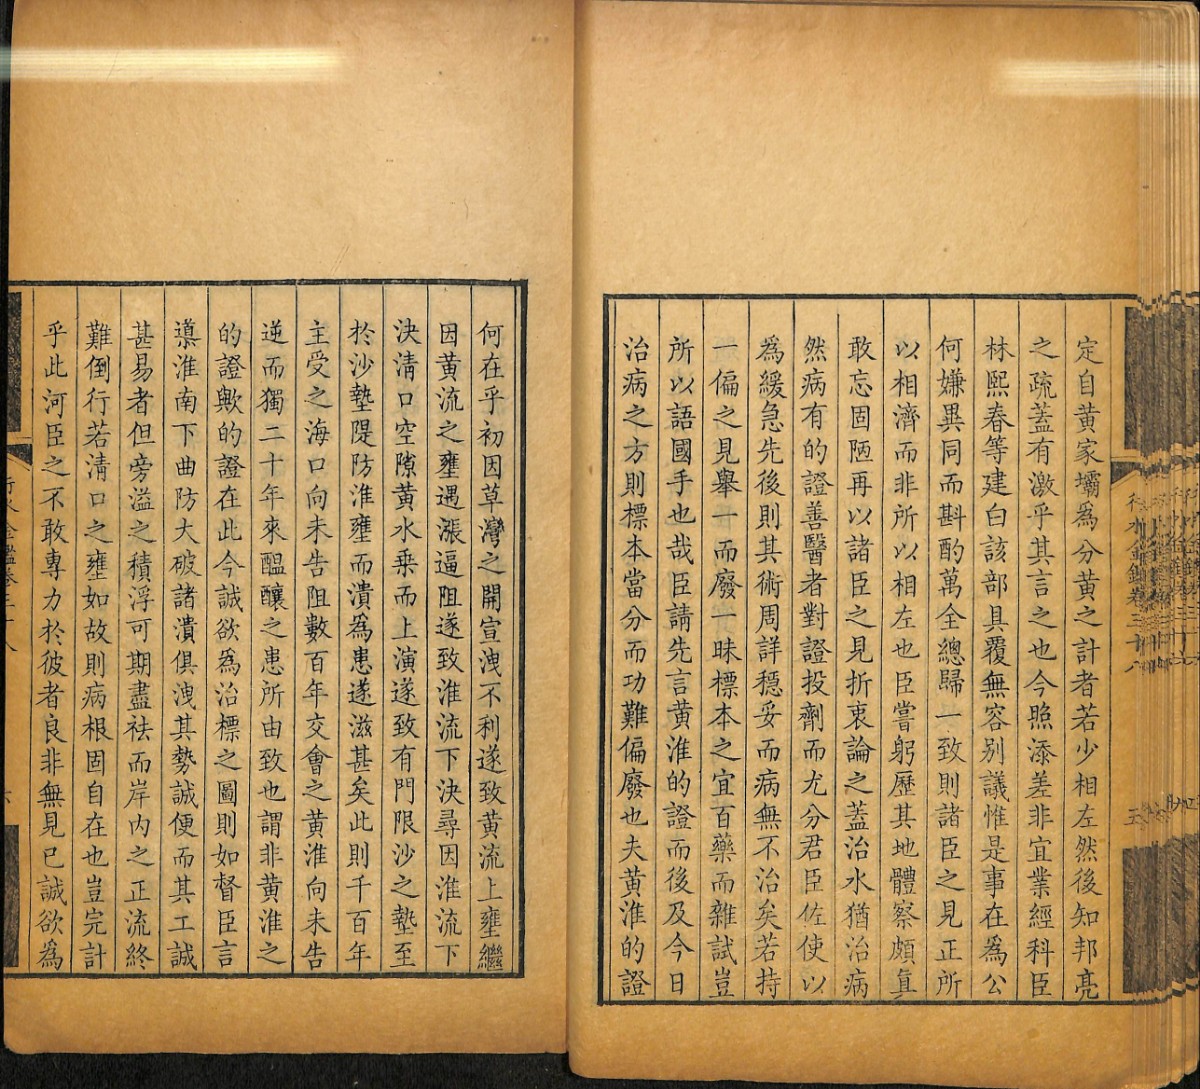 定自黄家壩為分黄之計者若少相左然後知邦亮
之疏蓋有激乎其言之也今照添差非宜業經科臣
林熙春等建白該部具覆無容别議惟是事在為公
何嫌異同而斟酌萬全總歸一致則諸臣之見正所
以相濟而非所以相左也臣嘗躬歷其地體察頗真
敢忘固陋再以諸臣之見折衷論之蓋治水猶治病
然病有的證善醫者對證投劑而尤分君臣佐使以
為緩急先後則其術周詳穩妥而病無不治矣若持
一偏之見舉一而廢一昧標本之宜百藥而雜試豈
所以語國手也哉臣請先言黄淮的證而後及今日
治病之方則標本當分而功難偏廢也夫黄淮的證
何在乎初因草灣之開宣洩不利遂致黄流上壅繼
因黄流之壅遇漲逼阻遂致淮流下決尋因淮流下
決清口空隙黄水乗而上演遂致有門限沙之墊至
於沙墊隄防淮壅而潰為患遂滋甚矣此則千百年
主受之海口向未告阻數百年交會之黄淮向未告
逆而獨二十年來醖釀之患所由致也謂非黄淮之
的證歟的證在此今誠欲為治標之圖則如督臣言
導淮南下曲防大破諸潰俱洩其勢誠便而其工誠
甚易者但旁溢之積浮可期盡祛而岸内之正流終
難倒行若清口之壅如故則病根固自在也豈完計
乎此河臣之不敢專力於彼者良非無見已誠欲為